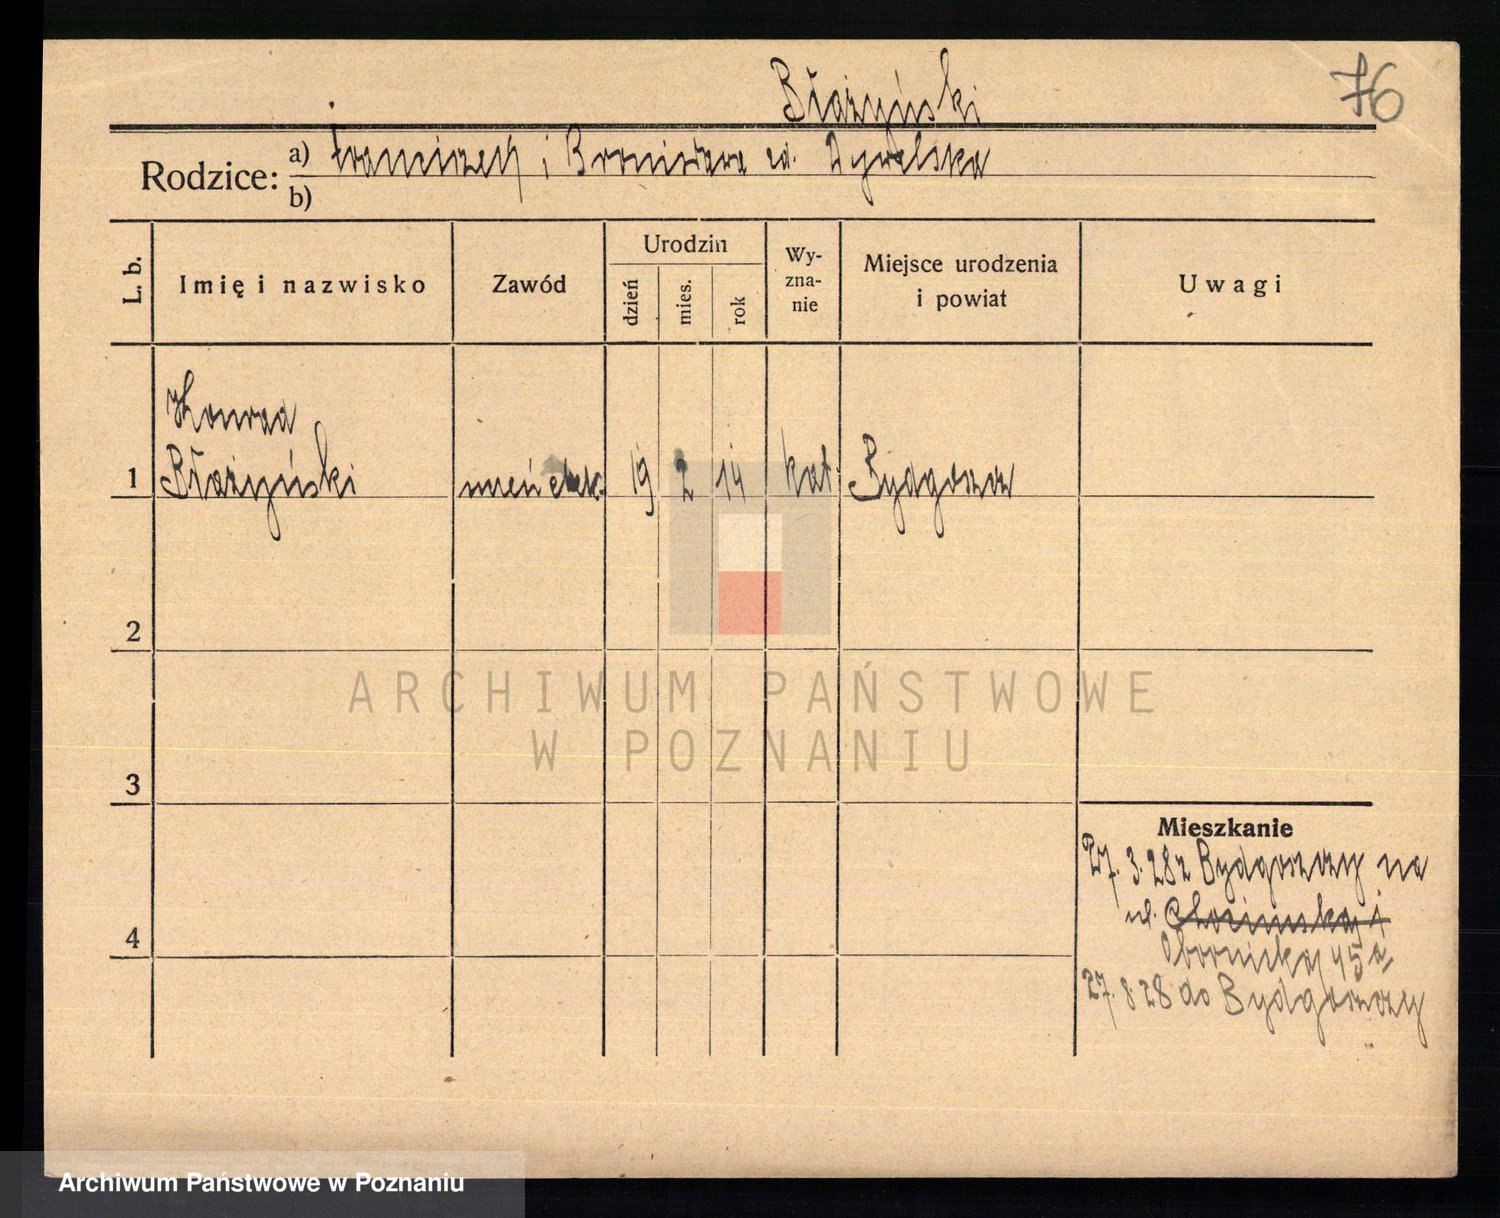 Błażyński
76
Rodzice:
a) Franciszek i Bronisława zd.
b)
L. b.
Imię i nazwisko
Zawód
Urodzin
dzień
mies.
rok
Wy-
zna-
nie
Miejsce urodzenia
i powiat
Uwagi
Konrad
1 Błażyński uczeń elek. 19 2 14 kat. Bydgoszcz
2
3
4
Mieszkanie
27. 3. 28 z Bydgoszczy na
ul.
Obornicką 45a
27. 8. 28 do Bydgoszczy
ARCHIWUM PAŃSTWOWE
W POZNANIU
Archiwum Państwowe w Poznaniu